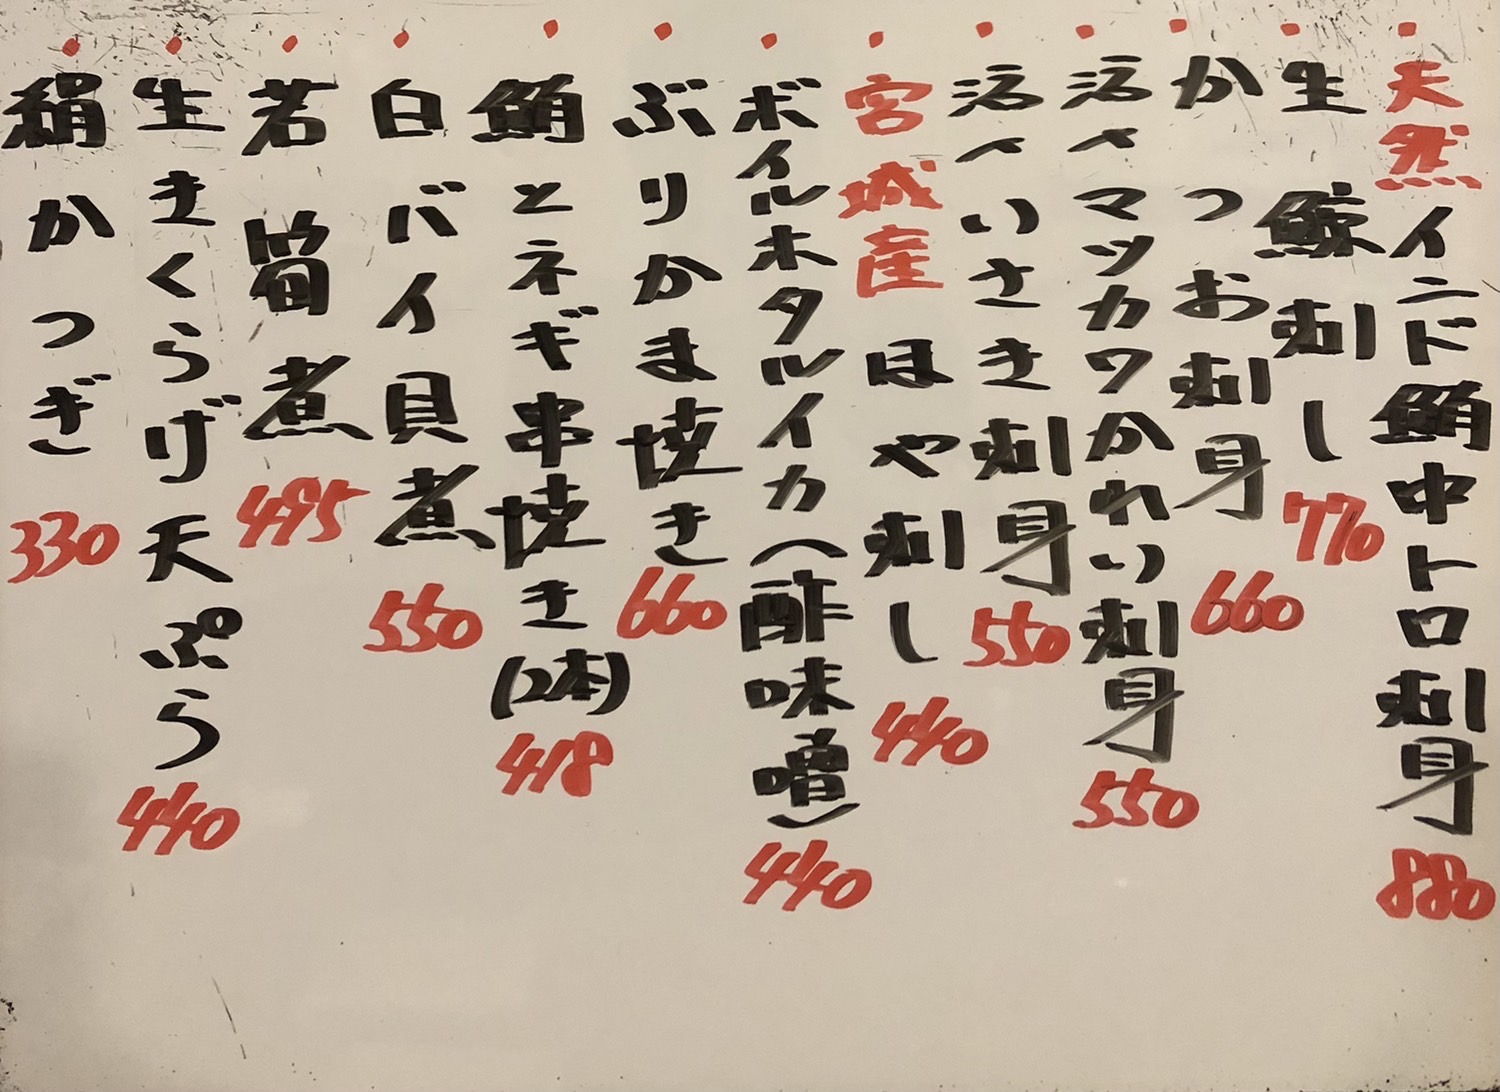 天然インド鮪中トロ刺身 880
生鯨刺し 770
かつお刺身 660
活〆マツカワかれい刺身 550
活〆いさき刺身 550
宮城産ほや刺し 440
ボイルホタルイカ(酢味噌) 440
ぶりかま焼き 660
鮪とネギ串焼き(2本) 418
白バイ貝煮 550
若筍煮 495
生きくらげ天ぷら 440
絹かつぎ 330